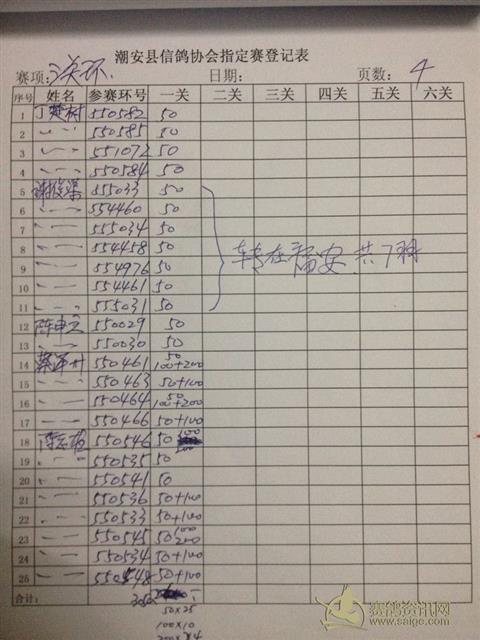 潮安县信鸽协会指定赛登记表
赛项: 决环 日期: 页数: 4
序号 姓名 参赛环号 一关 二关 三关 四关 五关 六关
1 丁楚树 550582 50
2 〃 550585 50
3 〃 551072 50
4 〃 550584 50
5 555033 50
6 〃 554460 50
7 〃 555034 50
8 〃 554458 50 转在 福安 共7羽
9 〃 554976 50
10 〃 554461 50
11 〃 555031 50
12 550029 50
13 〃 550030 50
14 550461 50 100+200
15 〃 550463 50+100
16 〃 550464 50 100+200
17 〃 550466 50+100
18 550546 50 100 200
19 〃 550535 50
20 〃 550541 50
21 〃 550536 50+100
22 〃 550533 50+100
23 〃 550545 50 100 200
24 〃 550534 50+100
25 〃 550548 50+100
合计:
50×25
100×10
200×4
赛鸽资讯网
www.saige.com